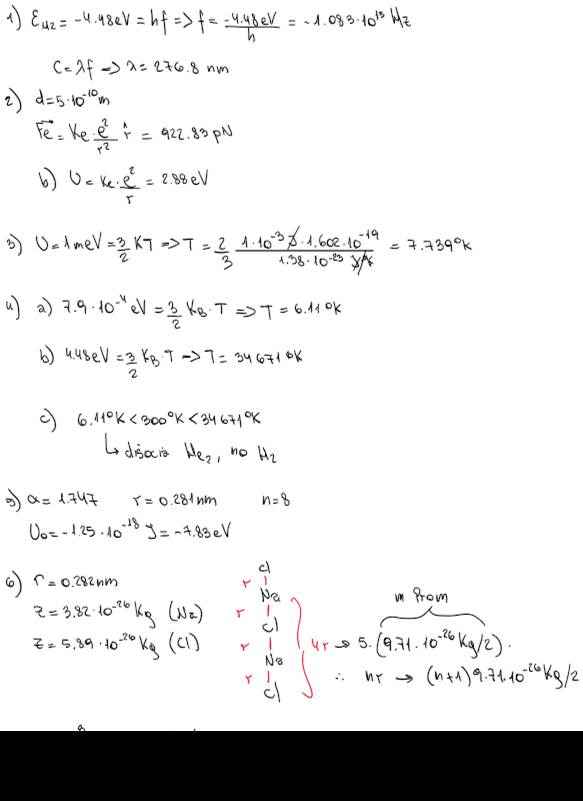 1) E_H2 = -4.48eV = hf => f = -4.48eV/h = -1.083·10^15 Hz
C = λf => λ = 276.8 nm
2) d = 5·10^-10 m
Fe = Ke·e^2/r^2 r̂ = 922.83 pN
b) U = Ke·e^2/r = 2.88 eV
3) U = 1meV = 3/2 KT => T = 2/3 1·10^-3 J·1.602·10^-19/1.38·10^-23 J/K = 7.739°K
4) a) 7.9·10^-4 eV = 3/2 K_B·T => T = 6.11°K
b) 4.48eV = 3/2 K_B·T -> T = 34671°K
c) 6.11°K < 300°K < 34671°K
↳ disocia He2, no H2
5) α = 1.747 r = 0.281nm n=8
U0 = -1.25·10^-18 J = -7.83 eV
6) r = 0.282nm
Z = 3.82·10^-26 Kg (Na)
Z = 5.89·10^-26 Kg (Cl)
Cl
r
Na
r
Cl
r
Na
r
Cl
m Prom
4r -> 5·(9.71·10^-26 Kg/2).
∴ nr -> (n+1)9.71·10^-26 Kg/2